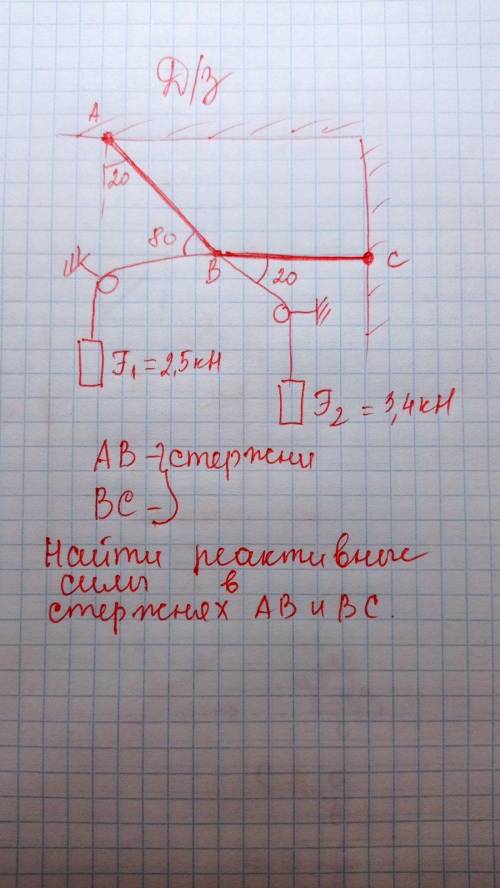 Д/з
A
20
80
B
20
C
F₁ = 2,5 кН
F₂ = 3,4 кН
AB - } стержни
BC -
Найти реактивные
силы в
стержнях AB и BC.